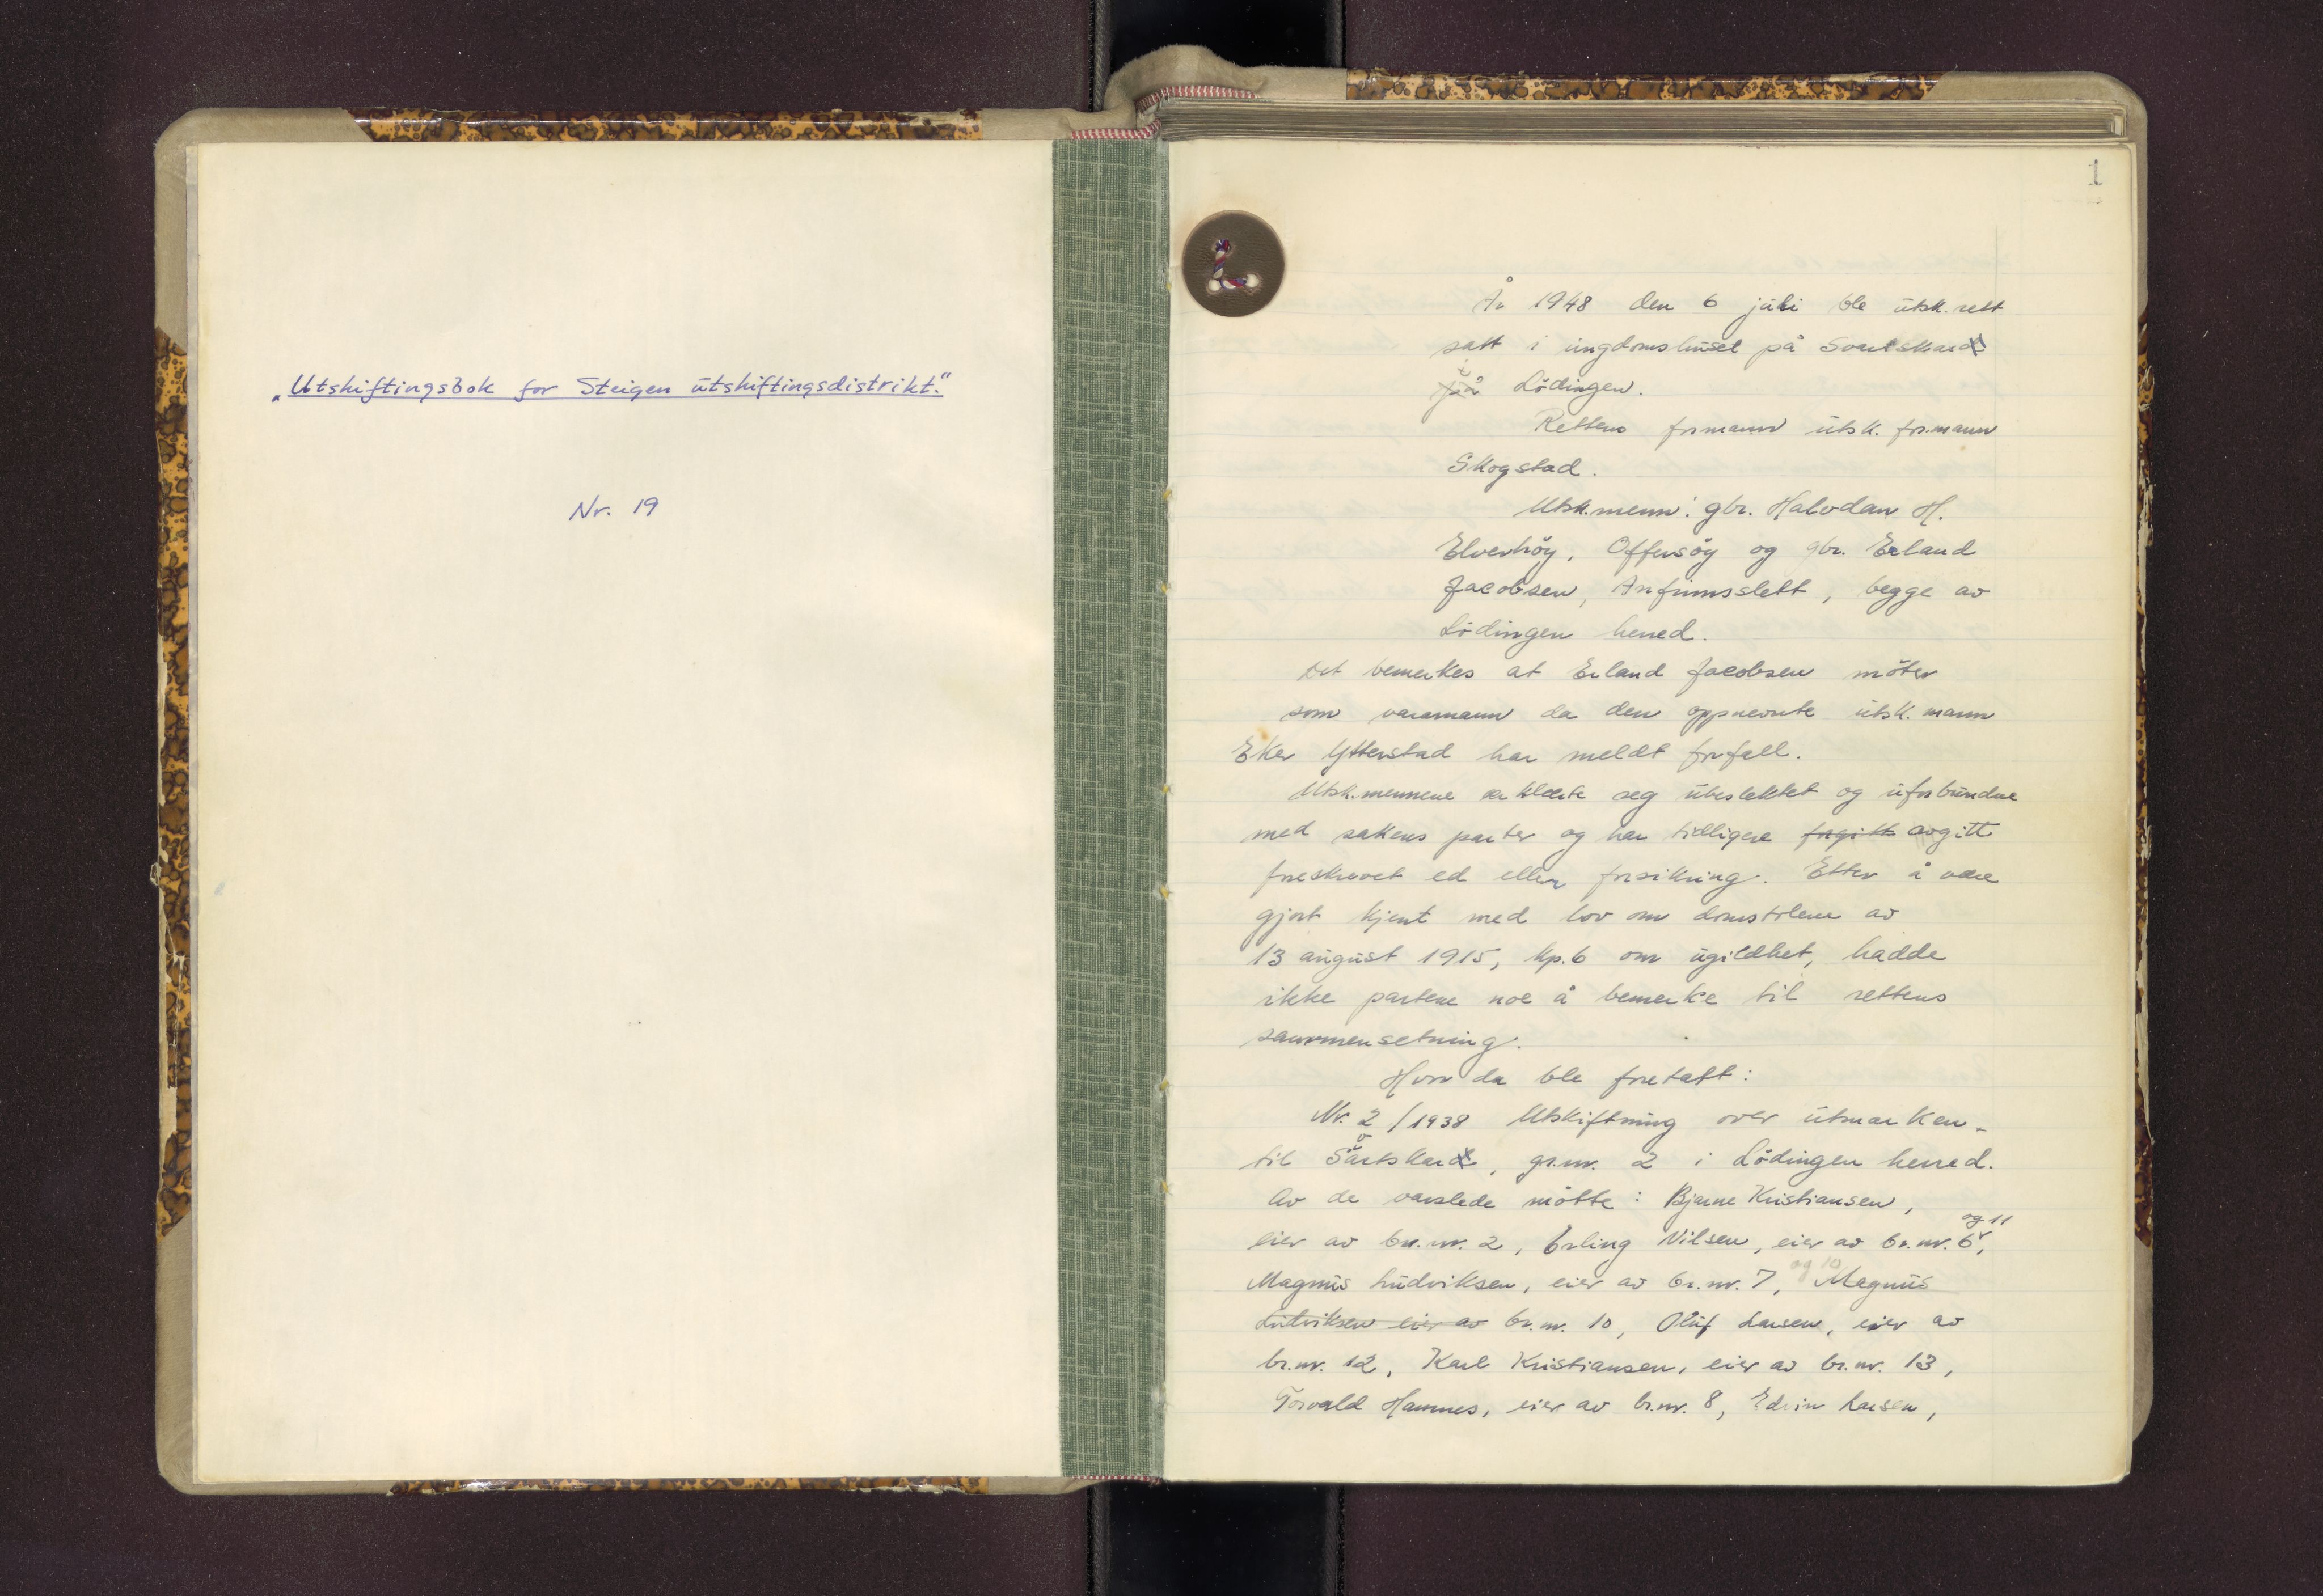 „Utskiftingsbok for Steigen utskiftingsdistrikt."
Nr. 19
1
År 1948 den 6 juli ble utsk. rett
satt i ungdomshuset på Svartskard
i
på Lödingen.
Rettens formann utsk. formann
Skogstad.
Utsk.menn: gbr. Halvdan H.
Elverhöy, Offersöy og gbr. Erland
Jacobsen, Anfinnsslett, begge av
Lödingen herred.
Det bemerkes at Erland Jacobsen möter
som varamann da den oppnevnte utsk. mann
Eker Ytterstad har meldt forfall.
Utsk.mennene erklærte seg ubeslektet og uforbundne
med sakens parter og har tidligere forgitt avgitt
foreskrevet ed eller forsikring. Etter å være
gjort kjent med lov om domstolene av
13 august 1915, kp. 6 om ugildhet, hadde
ikke partene noe å bemerke til rettens
sammensetning.
Hvor da ble foretatt:
Nr. 2/1938 Utskiftning over utmarken
v
til Sartskard, gr.nr. 2 i Lödingen herred.
Av de varslede mötte: Bjarne Kristiansen,
og 11
eier av br.nr. 2, Erling Nilsen, eier av br.nr. 6,
og 10
Magnus Ludviksen, eier av br.nr. 7, Magnus
Ludviksen eier av br.nr. 10, Oluf Larsen, eier av
br.nr. 12, Karl Kristiansen, eier av br.nr. 13,
Torvald Hamnes, eier av br.nr. 8, Edvin Larsen,